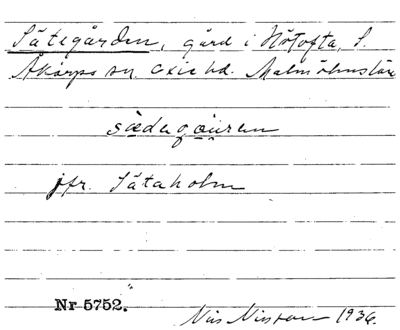 Sätegården, gård i Hötofta, S.
Åkarps sn. Oxie hd. Malmöhus län
sädagåuren
jfr. Sätaholm
Nr 5752.
Nils Nilsson 1936.